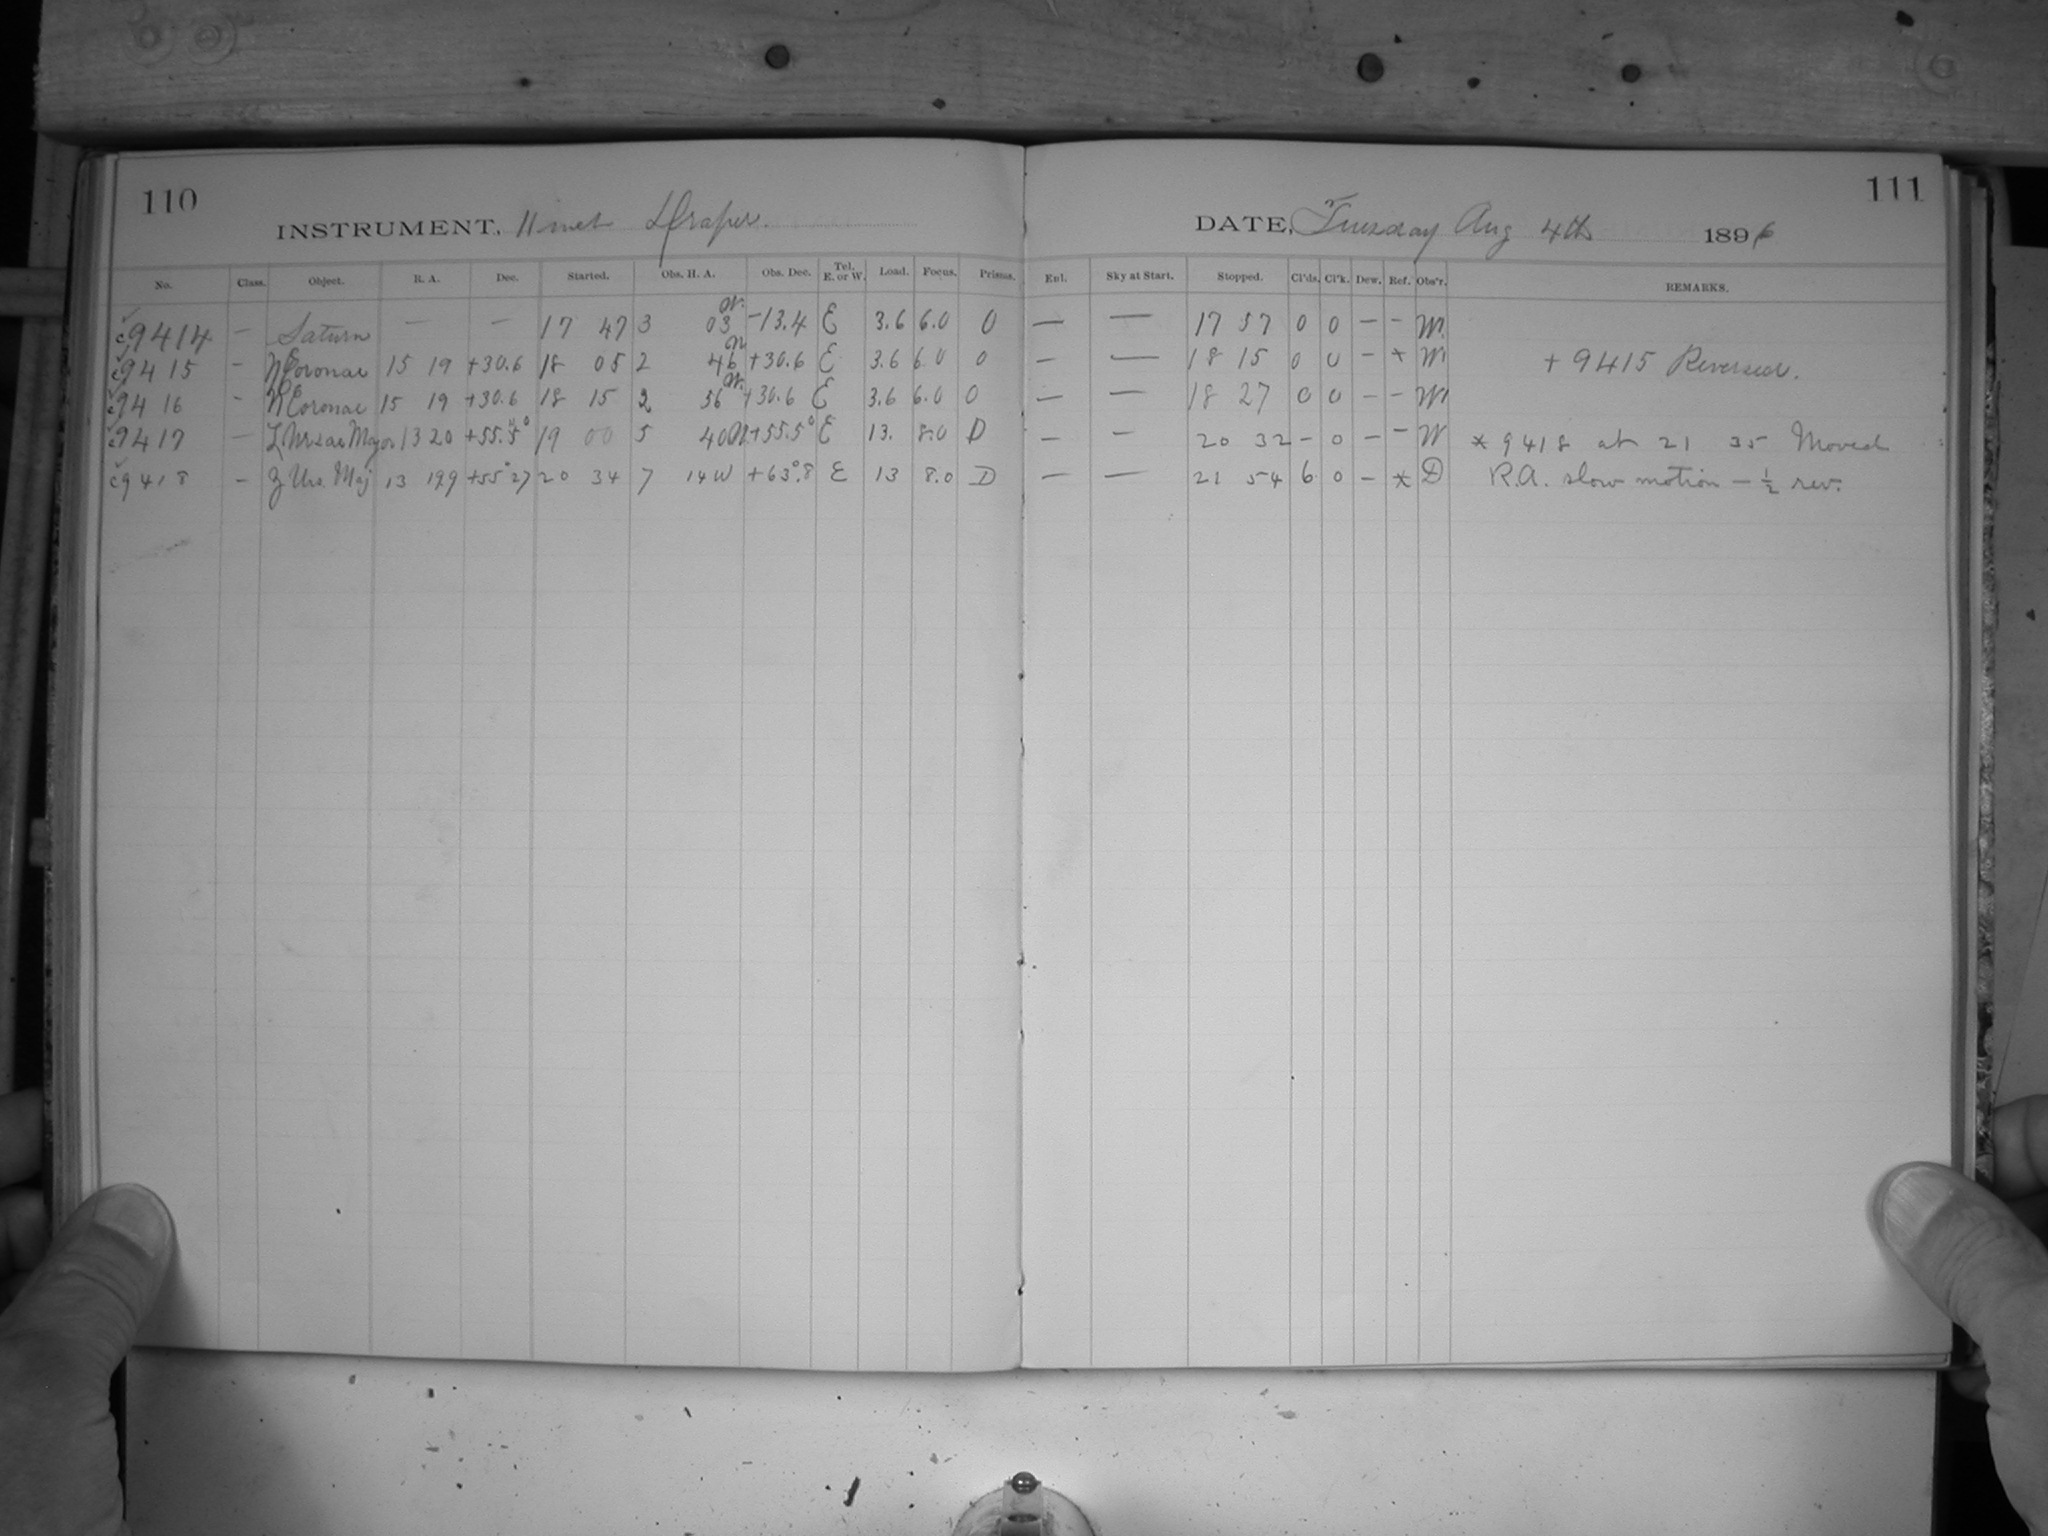 110
INSTRUMENT, 11 inch Draper.
No. Class. Object. R. A. Dec. Started. Obs. H. A. Obs. Dec. Tel. E. or W. Load. Focus. Prisms.
c9414 — Saturn — — 17 47 3 03 W. -13.4 E 3.6 6.0 0
c9415 — Coronae 15 19 +30.6 18 05 2 46 W +30.6 E 3.6 6.0 0
c9416 — Coronae 15 19 +30.6 18 15 2 56 W. +30.6 E 3.6 6.0 0
c9417 — Ursae Major 13 20 +55.5° 19 00 5 40 W +55.5° E 13. 8.0 D
c9418 — Urs. Maj 13 19.9 +55° 27 20 34 7 14 W +63°.8 E 13 8.0 D
111
DATE, Tuesday Aug 4th 1896
Enl. Sky at Start. Stopped. Cl'ds. Cl'k. Dew. Ref. Obs'r. REMARKS.
— — 17 57 0 0 — - W.
— — 18 15 0 0 - + W. + 9415 Reversed.
— — 18 27 0 0 - - W.
— — 20 32 - 0 — - W * 9418 at 21 35 Moved
— — 21 54 6 0 — * D R.A. slow motion — ½ rev.